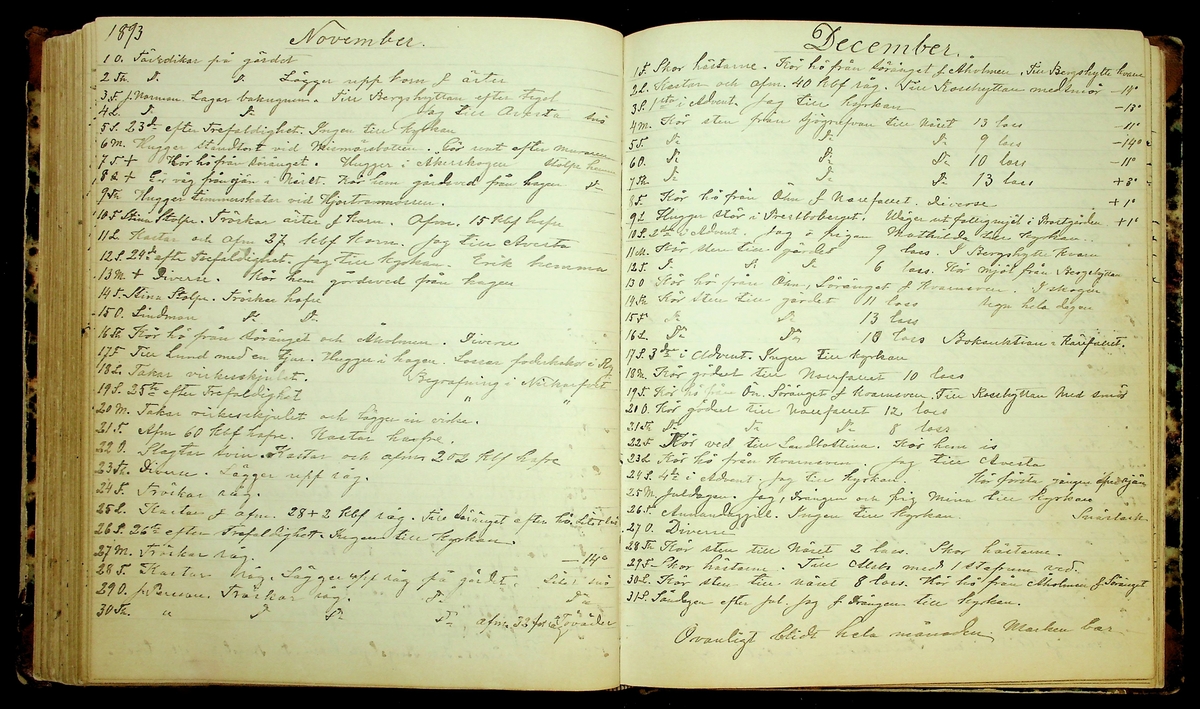 1893
November.
1 O. Täckdikar på gärdet
2 Th. D:o D:o Lägger upp korn & ärter
3 F. J. Norman. Lagar bakugnen. Till Bergshyttan efter tegel
4 L. D:o D:o Jag till Avesta snö
5 S. 23de efter Trefaldighet. Ingen till kyrkan
6 M. Hugger vid
7 T + Kör hö från Söränget. Hugger i Åkerskogen
8 O + Er väg från sjön i Näset. Kör hem gårdsved från hagen
9 Th. Hugger vid Hjortronmossen.
10 F. Stina Stolpe. Tröskar ärter & Korn. Afm. 15 Kbf hafre
11 L. Kastar och Afm 27 Kbf Korn. Jag till Avesta
12 S. 24de efter Trefaldighet. Jag till kyrkan. Erik hemma
13 M + Diverse. Kör hem gårdsved från hagen
14 T. Stina Stolpe. Tröskar hafre
15 O. Lindman D:o D:o
16 Th. Kör hö från Söränget och Åholmen. Diverse
17 F. Till Lund med en tjur. Hugger i hagen.
18 L. Takar virkesskjulet. Begrafning i
19 S. 25te efter Trefaldighet
20 M. Takar virkesskjulet och lägger in virke.
21 T. Afm 60 Kbf hafre. Kastar hafre.
22 O. Slagtar svin. Kastar och afm. 202 Kbf hafre
23 Th. Diverse. Lägger upp råg.
24 F. Tröskar råg.
25 L. Kastar & afm. 28+2 Kbf råg. Till Söränget efter hö.
26 S. 26te efter Trefaldighet. Ingen till kyrkan.
27 M. Tröskar råg. —14°
28 T. Kastar råg. Lägger upp råg på gärdet. Litet snö
29 O. Tröskar råg. D:o D:o
30 Th. " D:o D:o D:o afm. Töväder
December.
1 F. Skor hästarne. Kör hö från Söränget & Åholmen. Till Bergshytte kvarn
2 L. Kastar och afm. 40 Kbf råg. Till Roshyttan med smör —11°
3 S. 1sta i Advent. Jag till kyrkan —13°
4 M. Kör sten från till Näset 13 lass —11°
5 T. D:o D:o D:o 9 lass —14°
6 O. D:o D:o D:o 10 lass —11°
7 Th. D:o D:o D:o 13 lass +3°
8 F. Kör hö från Ön & Narefallet. Diverse +1°
9 L. Hugger stör i Väger ut fattigmjöl i Prostgården +1°
10 S. 2dra i Advent. Jag & pigan Mathilda till kyrkan.
11 M. Kör sten till gärdet 9 lass. I Bergshytte kvarn
12 T. D:o D:o D:o 6 lass. Kör mjöl från Bergshyttan
13 O Kör hö från Ön, Söränget & Kvarnsven. I skogen
14 Th. Kör sten till gärdet 11 lass regn hela dagen
15 F. D:o D:o 13 lass
16 L. D:o D:o 13 lass Bokauktion i
17 S. 3dje i Advent. Ingen till kyrkan
18 M. Kör gödsel till Narefallet 10 lass
19 T. Kör hö från Ön. Söränget & Kvarnsven. Till Roshyttan med smör
20 O. Kör gödsel till Narefallet 12 lass
21 Th D:o D:o D:o 8 lass
22 F. Kör ved till Kör hem is
23 L. Kör hö från Kvarnsven. Jag till Avesta
24 S. 4de i Advent. Jag till kyrkan. Kör första gången
25 M. Juldagen. Jag, drängen och pig Mina till kyrkan
26 T. Annandagjul. Ingen till kyrkan.
27 O. Diverse
28 Th. Kör sten till Näset 2 lass. Skor hästarne.
29 F. Skor hästarne. Till med 1 stafrum ved.
30 L. Kör sten till Näset 8 lass. Kör hö från Åholmen & Söränget
31 S. Söndagen efter jul. Jag & drängen till kyrkan.
Ovanligt blidt hela månaden. Marken bar